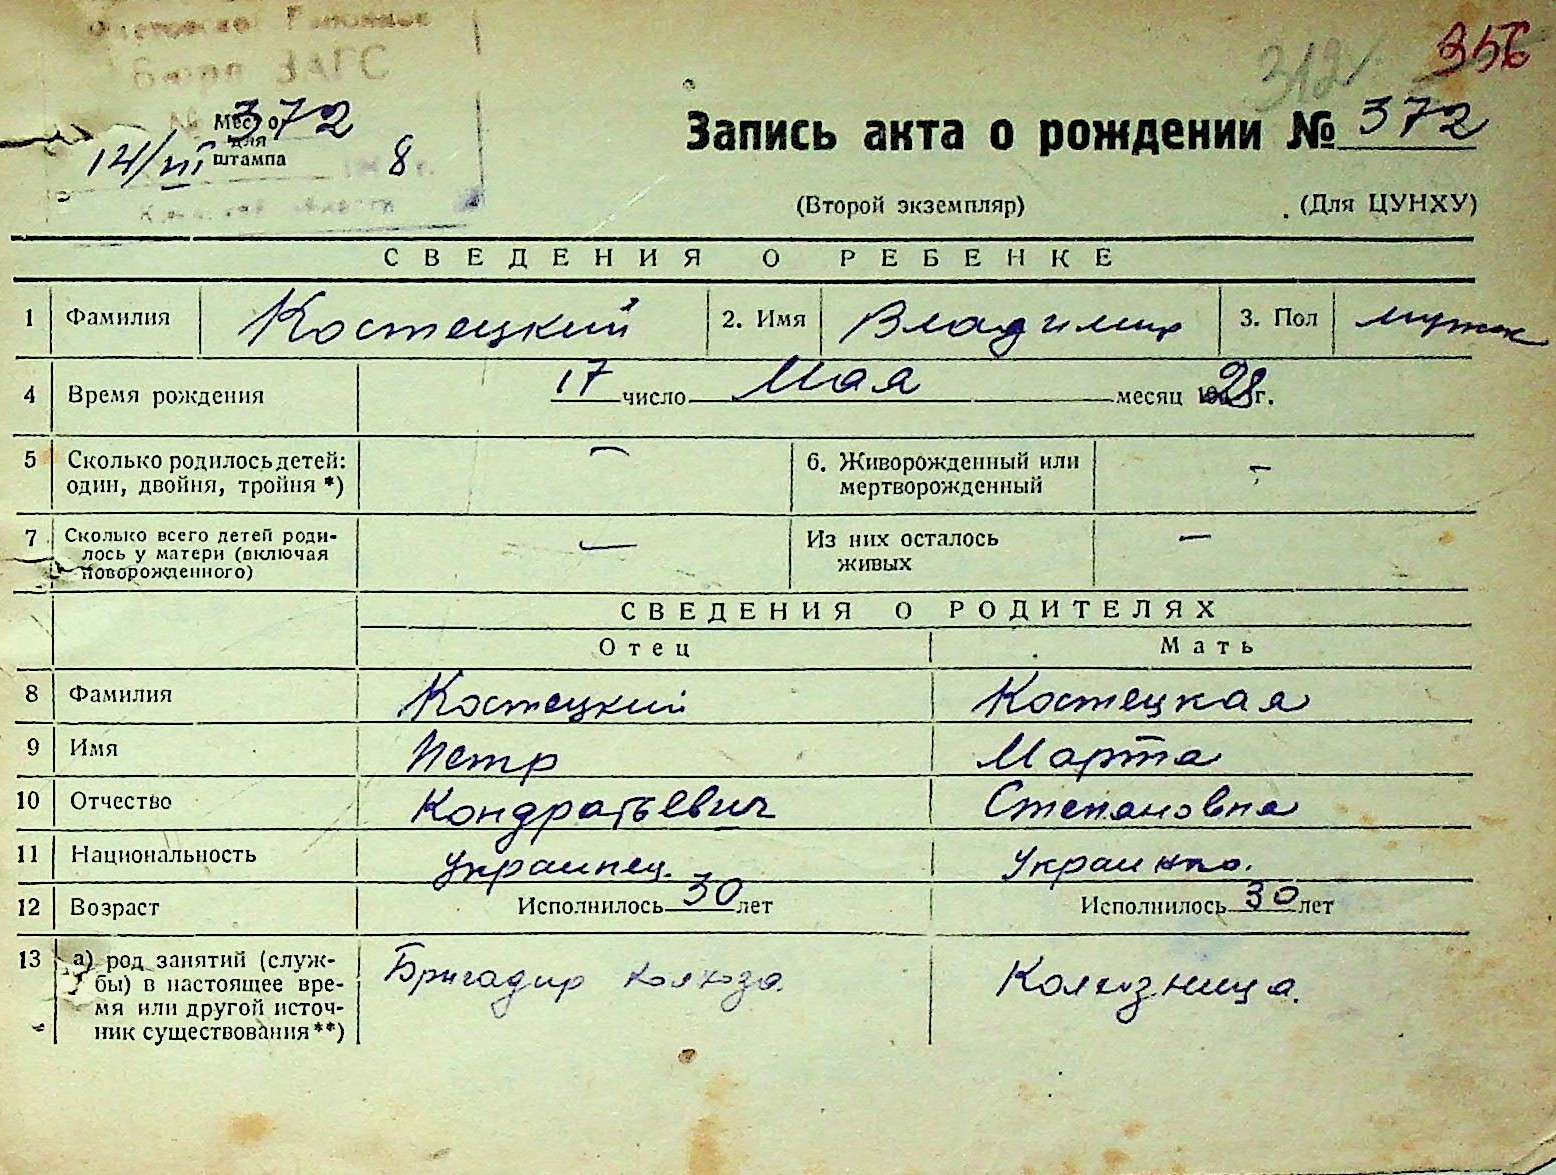 Бюро ЗАГС
312 356
Место для штампа
372
14/VI 8
Запись акта о рождении № 372
(Второй экземпляр) (Для ЦУНХУ)
СВЕДЕНИЯ О РЕБЕНКЕ
1 Фамилия Костецкий 2. Имя Владимир 3. Пол мужск
4 Время рождения 17 число Мая месяц 1928 г.
5 Сколько родилось детей: 6. Живорожденный или
один, двойня, тройня *) — мертворожденный —
7 Сколько всего детей роди- Из них осталось
лось у матери (включая — живых —
новорожденного)
СВЕДЕНИЯ О РОДИТЕЛЯХ
Отец Мать
8 Фамилия Костецкий Костецкая
9 Имя Петр Марта
10 Отчество Кондратьевич Степановна
11 Национальность Украинец. Украинка.
12 Возраст Исполнилось 30 лет Исполнилось 30 лет
13 а) род занятий (служ- Бригадир колхоза Колхозница.
бы) в настоящее вре-
мя или другой источ-
ник существования **)